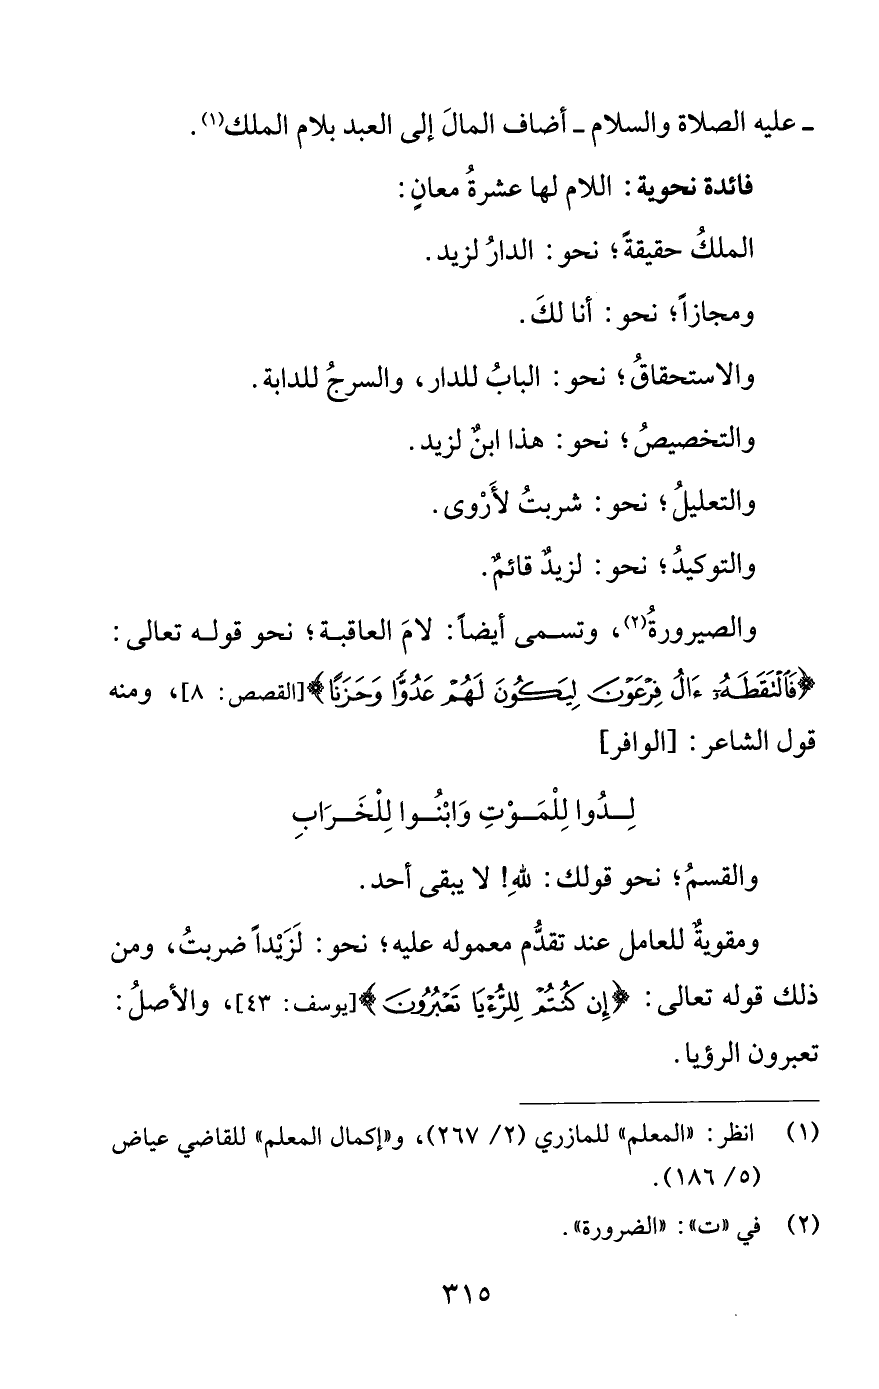 ـ عليه الصلاة والسلام ـ أضاف المالَ إلى العبد بلام الملك(١).
فائدة نحوية: اللام لها عشرةُ معانٍ:
الملكُ حقيقةً؛ نحو: الدارُ لزيد.
ومجازاً؛ نحو: أنا لكَ.
والاستحقاقُ؛ نحو: البابُ للدار، والسرجُ للدابة.
والتخصيصُ؛ نحو: هذا ابنٌ لزيد.
والتعليلُ؛ نحو: شربتُ لأَرْوى.
والتوكيدُ؛ نحو: لزيدٌ قائمٌ.
والصيرورةُ(٢)، وتسمى أيضاً: لامَ العاقبة؛ نحو قوله تعالى:
﴿فَٱلْتَقَطَهُۥٓ ءَالُ فِرْعَوْنَ لِيَكُونَ لَهُمْ عَدُوًّا وَحَزَنًا﴾[القصص: ٨]، ومنه
قول الشاعر: [الوافر]
لِـدُوا لِلْمَـوْتِ وَابْنُـوا لِلْخَـرَابِ
والقسمُ؛ نحو قولك: للهِ! لا يبقى أحد.
ومقويةٌ للعامل عند تقدُّم معموله عليه؛ نحو: لَزَيْداً ضربتُ، ومن
ذلك قوله تعالى: ﴿إِن كُنتُمْ لِلرُّءْيَا تَعْبُرُونَ﴾[يوسف: ٤٣]، والأصلُ:
تعبرون الرؤيا.
(١) انظر: «المعلم» للمازري (٢/ ٢٦٧)، و«إكمال المعلم» للقاضي عياض
(٥/ ١٨٦).
(٢) في «ت»: «الضرورة».
٣١٥